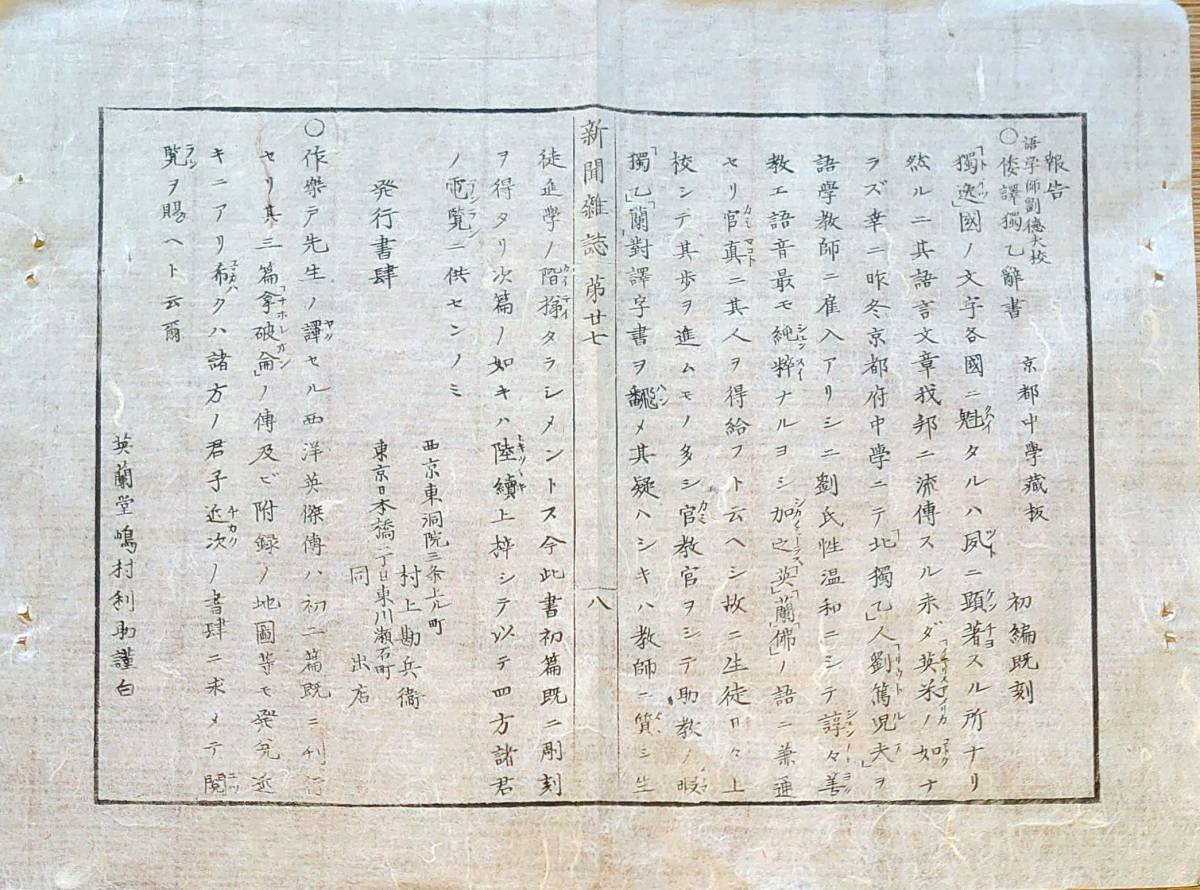 報告
語学師劉德夫校
○倭譯獨乙辭書 京都中學藏板 初編既刻
「獨逸」國ノ文字各國ニ魁タルハ夙ニ顕著スル所ナリ
然ルニ其語言文章我邦ニ流傳スル未ダ「英」「米」ノ如ナ
ラズ幸ニ昨冬京都府中學ニテ「北獨乙」人「劉篤児夫」ヲ
語學教師ニ雇入アリシニ劉氏性温和ニシテ諄々善
教エ語音最モ純粹ナルヨシ加之「英」「蘭」「佛」ノ語ニ兼通
セリ官真ニ其人ヲ得給フト云ヘシ故ニ生徒日々上
校シテ其歩ヲ進ムモノ多シ官教官ヲシテ助教ノ暇
「獨乙」「蘭」對譯字書ヲ飜メ其疑ハシキハ教師ニ質シ生
新聞雜誌 第廿七 八
徒進學ノ階梯タラシメントス今此書初篇既ニ彫刻
ヲ得タリ次篇ノ如キハ陸續上梓シテ以テ四方諸君
ノ電覧ニ供センノミ
発行書肆
西京東洞院三条上ル町
村上勘兵衞
東京日本橋二丁目東川瀬石町
同 出店
○作樂戸先生ノ譯セル西洋英傑傳ハ初二篇既ニ刋行
セリ其三篇「拿破侖」ノ傳及ビ附録ノ地圖等モ発兌近
キニアリ希クハ諸方ノ君子近次ノ書肆ニ求メテ閲
覧ヲ賜ヘト云爾
英蘭堂嶋村利助謹白